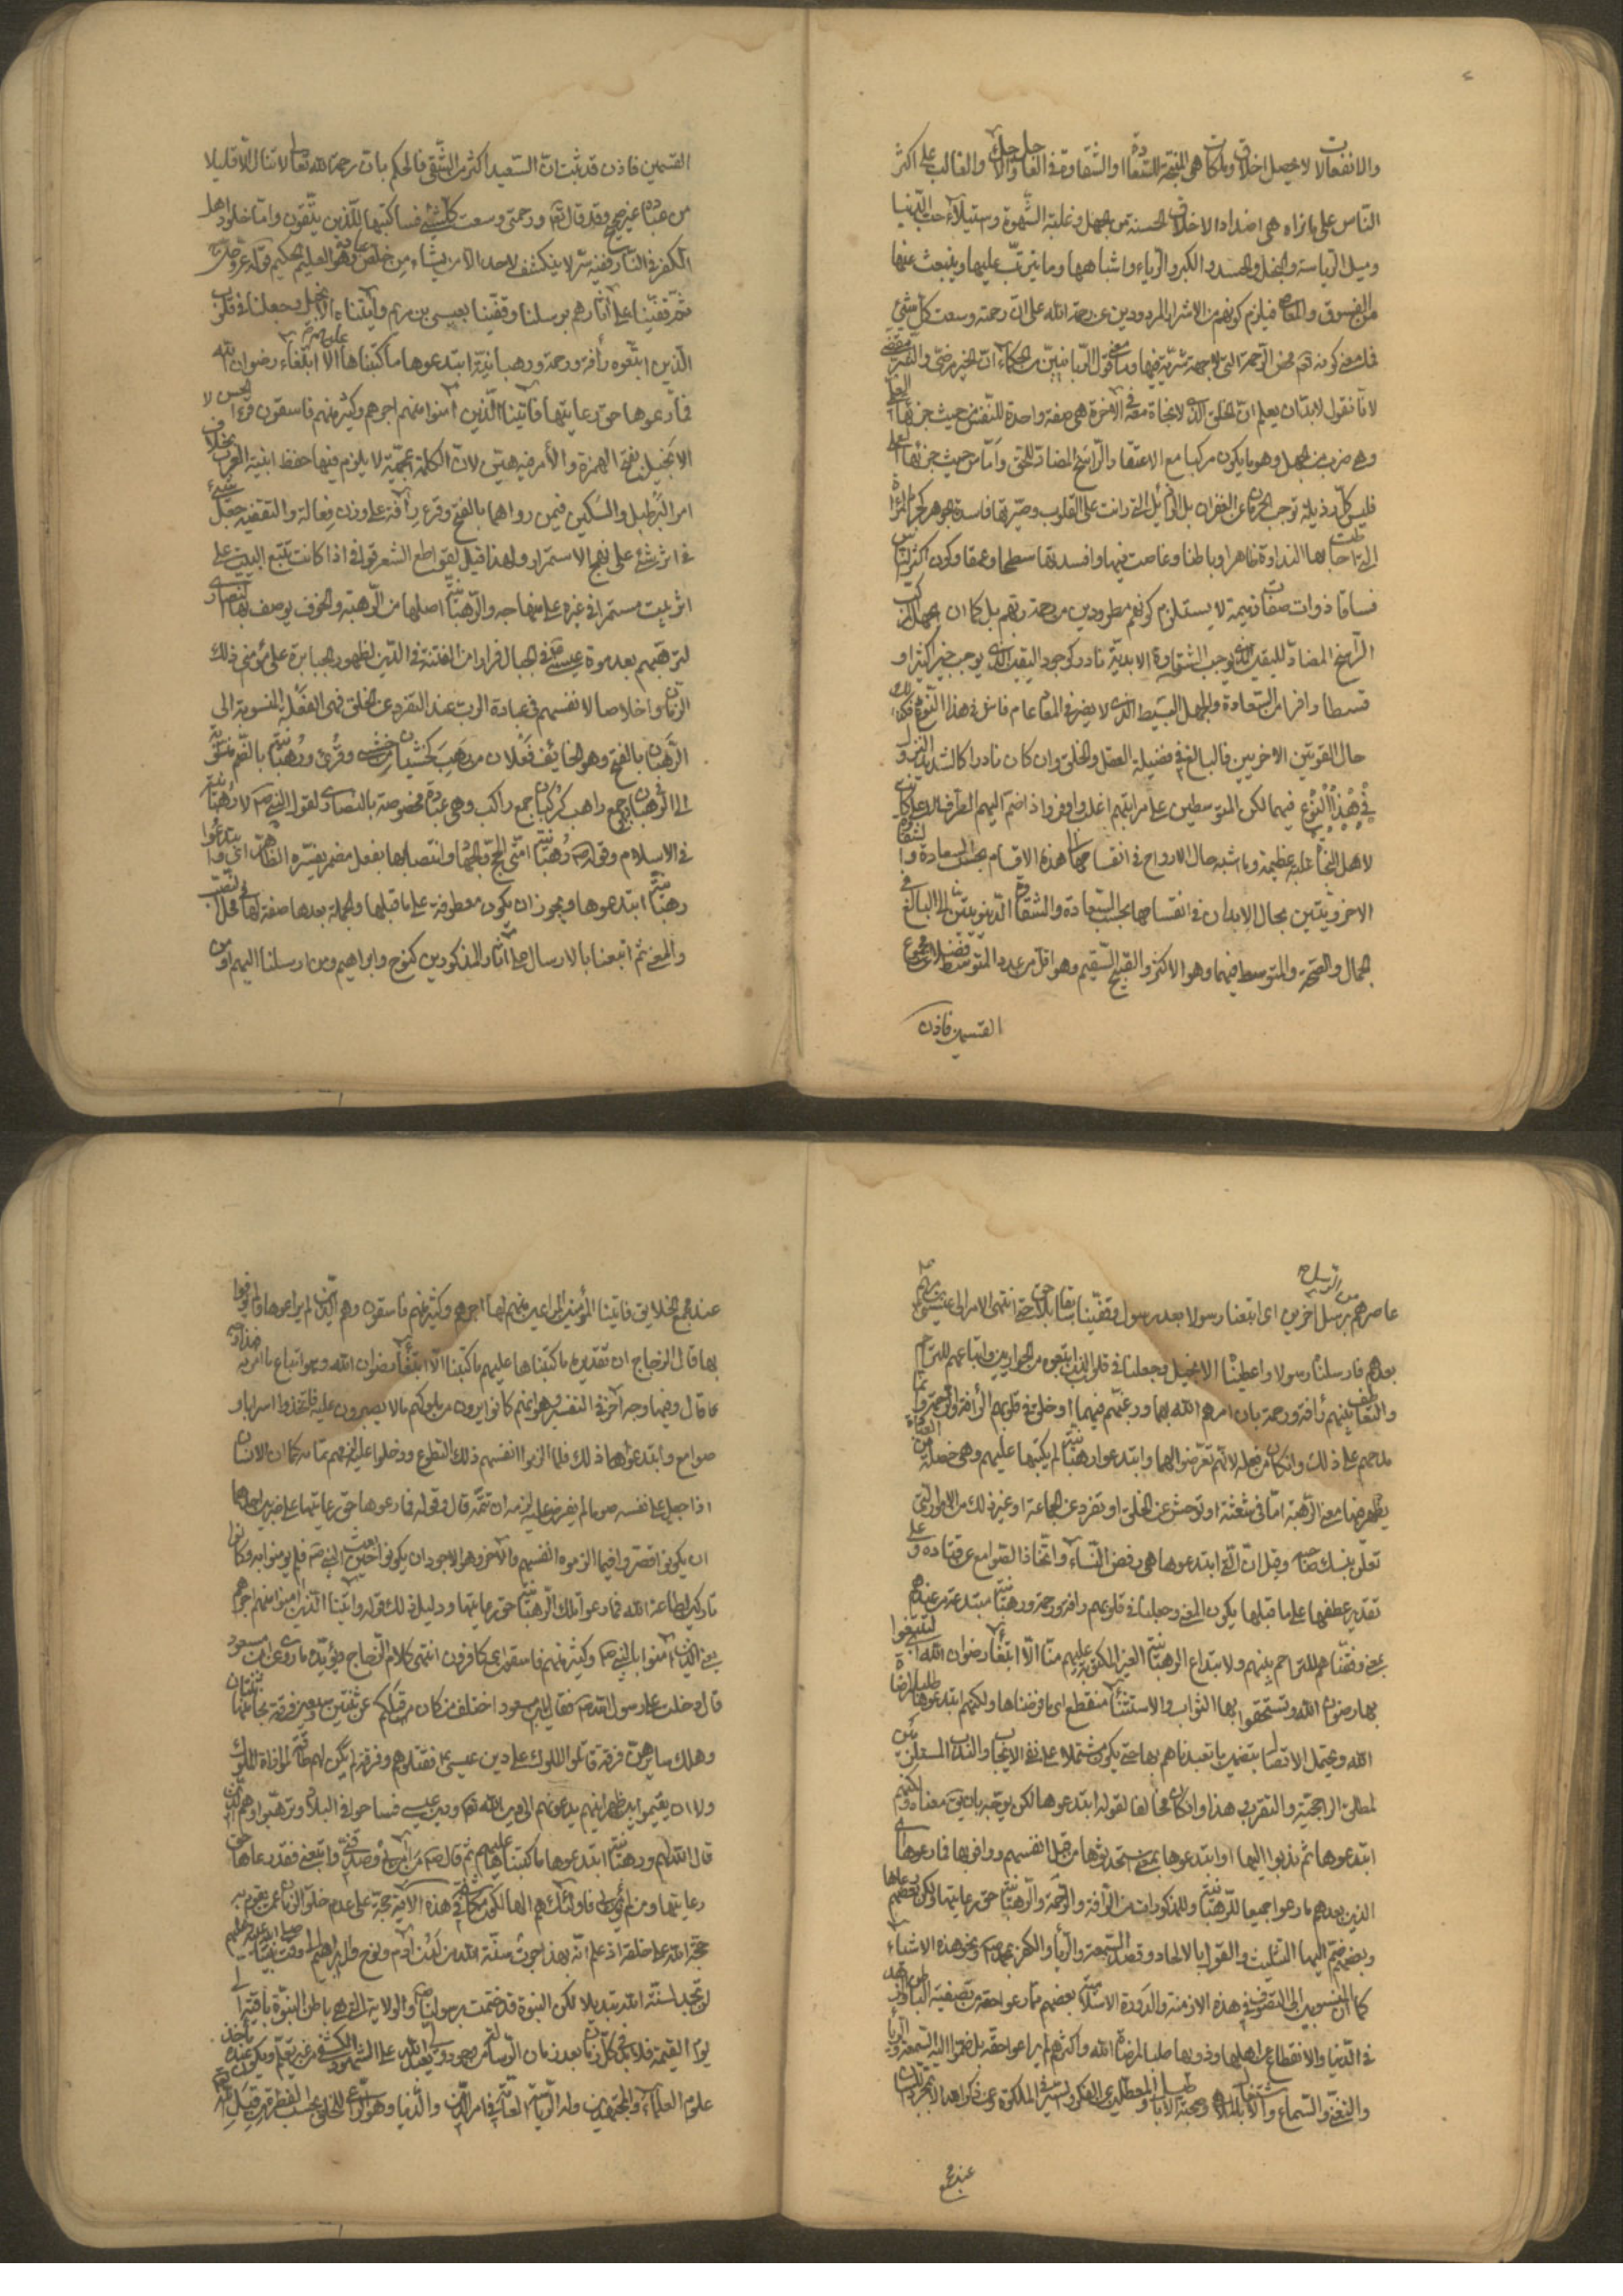 والانفعالات لا لاجل اخلاق وملكات هي المنبعة للسعادة والشقاوة في العاجل والآجل والغالب على اكثر
الناس على ما نراه هي اضداد الاخلاق الحسنة من الجهل وغلبة الشهوة واستيلاء حب الدنيا
وميل الرياسة والبخل والحسد والكبر والرياء واشباهها وما يترتب عليها وينبعث عنها
من الفسوق والمعاصي فيلزم كونهم من الاشرار المردودين عن رحمة الله على ان رحمته وسعت كل شيء
فما معنى كونه تعالى محض الرحمة التي لا جهة شرية فيها وما معنى قول الربانيين من الحكماء ان الخير مرضي والشر مقضي
لانا نقول لا بد ان يعلم ان الخلق الذي لا نجاة معه في الآخرة هي صفة واحدة للنفس من حيث جزئها العلمي
وهي ضرب من الجهل وهو ما يكون مركبا مع الاعتقاد الراسخ المضاد للحق واما من حيث جزئها العملي
فليس كل رذيلة توجب الحرمان عن الغفران بل الرذائل التي رانت على القلوب وصيرتها فاسدة الجوهر كجرم المرآة
التي احاطت بها النداوة ظاهرا وباطنا وغاصت فيها وافسدتها سطحا وعمقا وكون اكثر الناس
فساقا ذوات صفات ذميمة لا يستلزم كونهم مطرودين من رحمة ربهم بل كما ان الجهل المركب
الراسخ المضاد لليقين الذي يوجب الشقاوة الابدية نادر كوجود اليقين الذي يوجب خيرا كثيرا و
قسطا وافرا من السعادة والجهل البسيط الذي لا يضر في المعاد عام فاش في هذا النوع فكذلك
حال القوتين الاخريين فالبالغ في فضيلة العقل والخلق وان كان نادرا كالشديد النزول
في هذا النوع فيهما لكن المتوسطين على مراتبهم اغلب واوفر واذا ضم اليهم الطرف الاعلى كانت
لاهل النجاة غلبة عظيمة وما اشبه حال الارواح في انقسامها الى هذه الاقسام بحسب السعادة والشقاوة
الاخرويتين بحال الابدان في انقسامها بحسب السعادة والشقاوة الدنيويتين الى البالغ في
الجمال والصحة والمتوسط فيهما وهو الاكثر والقبيح السقيم وهو اقل من عدد المتوسط فضلا عن مجموع
القسمين فاذن
القسمين فاذن قد ثبت ان السعيد اكثر من الشقي فالحكم بان رحمة الله تعالى لا تنال الا قليلا
من عباده غير صحيح وقد قال تعالى ورحمتي وسعت كل شيء فساكتبها للذين يتقون واما خلود اهل
الكفر في النار ففيه سر لا ينكشف لاحد الا من يشاء من خلص عباده وهو العليم الحكيم قوله عز وجل
ثم قفينا على آثارهم برسلنا وقفينا بعيسى بن مريم وآتيناه الانجيل وجعلنا في قلوب
الذين اتبعوه رأفة ورحمة ورهبانية ابتدعوها ما كتبناها عليهم الا ابتغاء رضوان الله
فما رعوها حق رعايتها فآتينا الذين آمنوا منهم اجرهم وكثير منهم فاسقون قرأ الحسن
الانجيل بفتح الهمزة والأمر فيه هين لان الكلمة عجمية لا يلزم فيها حفظ ابنية العرب بخلاف
امر البرطيل والسكين فيمن رواهما بالفتح وقرئ رآفة على وزن فعالة والتقفية جعل شيء
في اثر شيء على نهج الاستمرار ولهذا قيل لمقاطع الشعر قوافي اذا كانت تتبع البيت على
اثر بيت مستمرا في غيره على منهاجه والرهبانية اصلها من الرهبة والخوف يوصف بها النصارى
لترهبهم بعد موت عيسى في الجبال فرارا من الفتنة في الدين لظهور الجبابرة على مؤمني ذلك
الزمان واخلاصا لانفسهم في عبادة الرب عند التفرد عن الخلق فهي الفعلة المنسوبة الى
الرهبان بالفتح وهو الخائف فعلان من رهب كخشيان من خشي وقرئ ورهبانية بالضم نسبة
الى الرهبان جمع راهب كركبان جمع راكب وهي عبادة مخصوصة بالنصارى لقول النبي ص لا رهبانية
في الاسلام وقوله ص رهبانية امتي الحج والجهاد وانتصابها بفعل مضمر يفسره الظاهر اي وابتدعوا
رهبانية ابتدعوها ويجوز ان يكون معطوفة على ما قبلها والجملة بعدها صفة لها في محل النصب
والمعنى ثم اتبعنا بالارسال على آثار المذكورين كنوح وابراهيم ومن ارسلنا اليهم ومن
عاصرهم من الرسل برسل آخرين اي اتبعنا رسولا بعد رسول وقفينا سابقا بلاحق حتى انتهى الامر الى عيسى بن مريم
بعدهم فارسلناه رسولا واعطيناه الانجيل وجعلنا في قلوب الذين اتبعوه من الحواريين واتباعهم للتراحم
والتعاطف بينهم رأفة ورحمة بان امرهم الله بهما ورغبهم فيهما او خلق في قلوبهم الرأفة والرحمة وانما
مدحهم على ذلك وان كان من فعله لانهم تعرضوا لهما وابتدعوا رهبانية لم يكتبها عليهم وهي خصلة من العبادة
يظهر فيها معنى الرهبة اما في شعثة او توحش عن الخلق او تفرد عن الجماعة او غير ذلك من الامور التي
تعلق بنسك صاحبه وقيل ان التي ابتدعوها هي رفض النساء واتخاذ الصوامع عن قتادة وعلى
تقدير عطفها على ما قبلها يكون المعنى وجعلنا في قلوبهم رافة ورحمة ورهبانية مبتدعة من عندهم
بمعنى وفقناهم للتراحم بينهم ولابتداع الرهبانية الغير المكتوبة عليهم منا الا ابتغاء رضوان الله ليبتغوا
بها رضوان الله ويستحقوا بها الثواب والاستثناء منقطع اي ما فرضناها ولكنهم ابتدعوها طلبا لرضاء
الله ويحتمل الاتصال بتضمين ما تعبدناهم بها حتى يكون مشتملا على نفي الايجاب والندب المستلزمين
لمطلق الراجحية والتقرب هذا وان كان مخالفا لقوله ابتدعوها لكن يوجه بان يق معناه ولكنهم
ابتدعوها ثم ندبوا اليها او ابتدعوها بمعنى استحدثوها من قبل انفسهم ووافوا بها فما رعوها اي
الذين بعدهم ما رعوا جميعا للرهبانية وللمذكورات من الرأفة والرحمة والرهبانية حق رعايتها ولكن بعضهم رعاها
وبعضهم ضم اليها التثليث والقول بالالحاد وقصد السمعة والرياء والكفر بمحمد ص ونحو هذه الاشياء
كما ان المنسوبين الى التصوف في هذه الازمنة والدورة الاسلامية بعضهم ما رعوا حقه من تصفية الباطن والزهد
في الدنيا والانقطاع عن اهليها وذويها طلبا لمرضاة الله واكثرهم لم يراعوا حقه بل ضموا اليه السمعة والرياء
عند مجمع
عند مجمع الخلايق فآتينا المؤمنين المراعين منهم لها اجرهم وكثير منهم فاسقون وهم الذين لم يراعوها فما وفوا
بها قال الزجاج ان تقديره ما كتبناها عليهم ما كتبنا الا ابتغاء رضوان الله وهو اتباع ما امر به فهذا وجه
كما قال وفيها وجه آخر في التفسير هو انهم كانوا يرون من ملوكهم ما لا يصبرون عليه فاتخذوا اسرابا و
صوامع وابتدعوا ذلك فلما الزموا انفسهم ذلك التطوع ودخلوا عليه لزمهم تمامه كما ان الانسان
اذا جعل على نفسه صوما لم يفرض عليه لزمه ان تتمه قال وقوله فما رعوها حق رعايتها على ضربين احدهما
ان يكونوا قصروا فيما الزموه انفسهم والآخر وهو الاجود ان يكونوا حين بعث النبي ص فلم يؤمنوا به وكانوا
تاركين لطاعة الله فما رعوا تلك الرهبانية حق رعايتها ودليل ذلك قوله وآتينا الذين آمنوا منهم اجرهم
يعني الذين آمنوا بالنبي ص وكثير منهم فاسقون اي كافرون انتهى كلام الزجاج ويؤيده ما روي عن ابن مسعود
قال دخلت على رسول الله ص فقال يابن مسعود اختلف من كان من قبلكم على ثنتين وسبعين فرقة نجا منها ثنتان
وهلك سايرهن فرقة قاتلوا الملوك على دين عيسى ع فقتلوهم وفرقة لم يكن لهم طاقة لموازاة الملوك
ولا ان يقيموا بين ظهرانيهم يدعونهم الى دين الله تعالى ودين عيسى فساحوا في البلاد وترهبوا وهم الذين
قال الله لهم ورهبانية ابتدعوها ما كتبناها عليهم ثم قال ص من آمن بي وصدقني واتبعني فقد رعاها حق
رعايتها ومن لم يؤمن بي فاولئك هم الهالكون مكاشفة في هذه الآية حجة على عدم خلو الزمان عمن يقوم به
حجة الله على خلقه اذ علم انه بهذا جرت سنة الله من لدن آدم ونوح وآل ابراهيم الى وقت نبينا صلى الله عليه وعليهم
لن تجد لسنة الله تبديلا لكن النبوة قد ختمت برسولنا ص والولاية التي هي باطن النبوة باقية الى